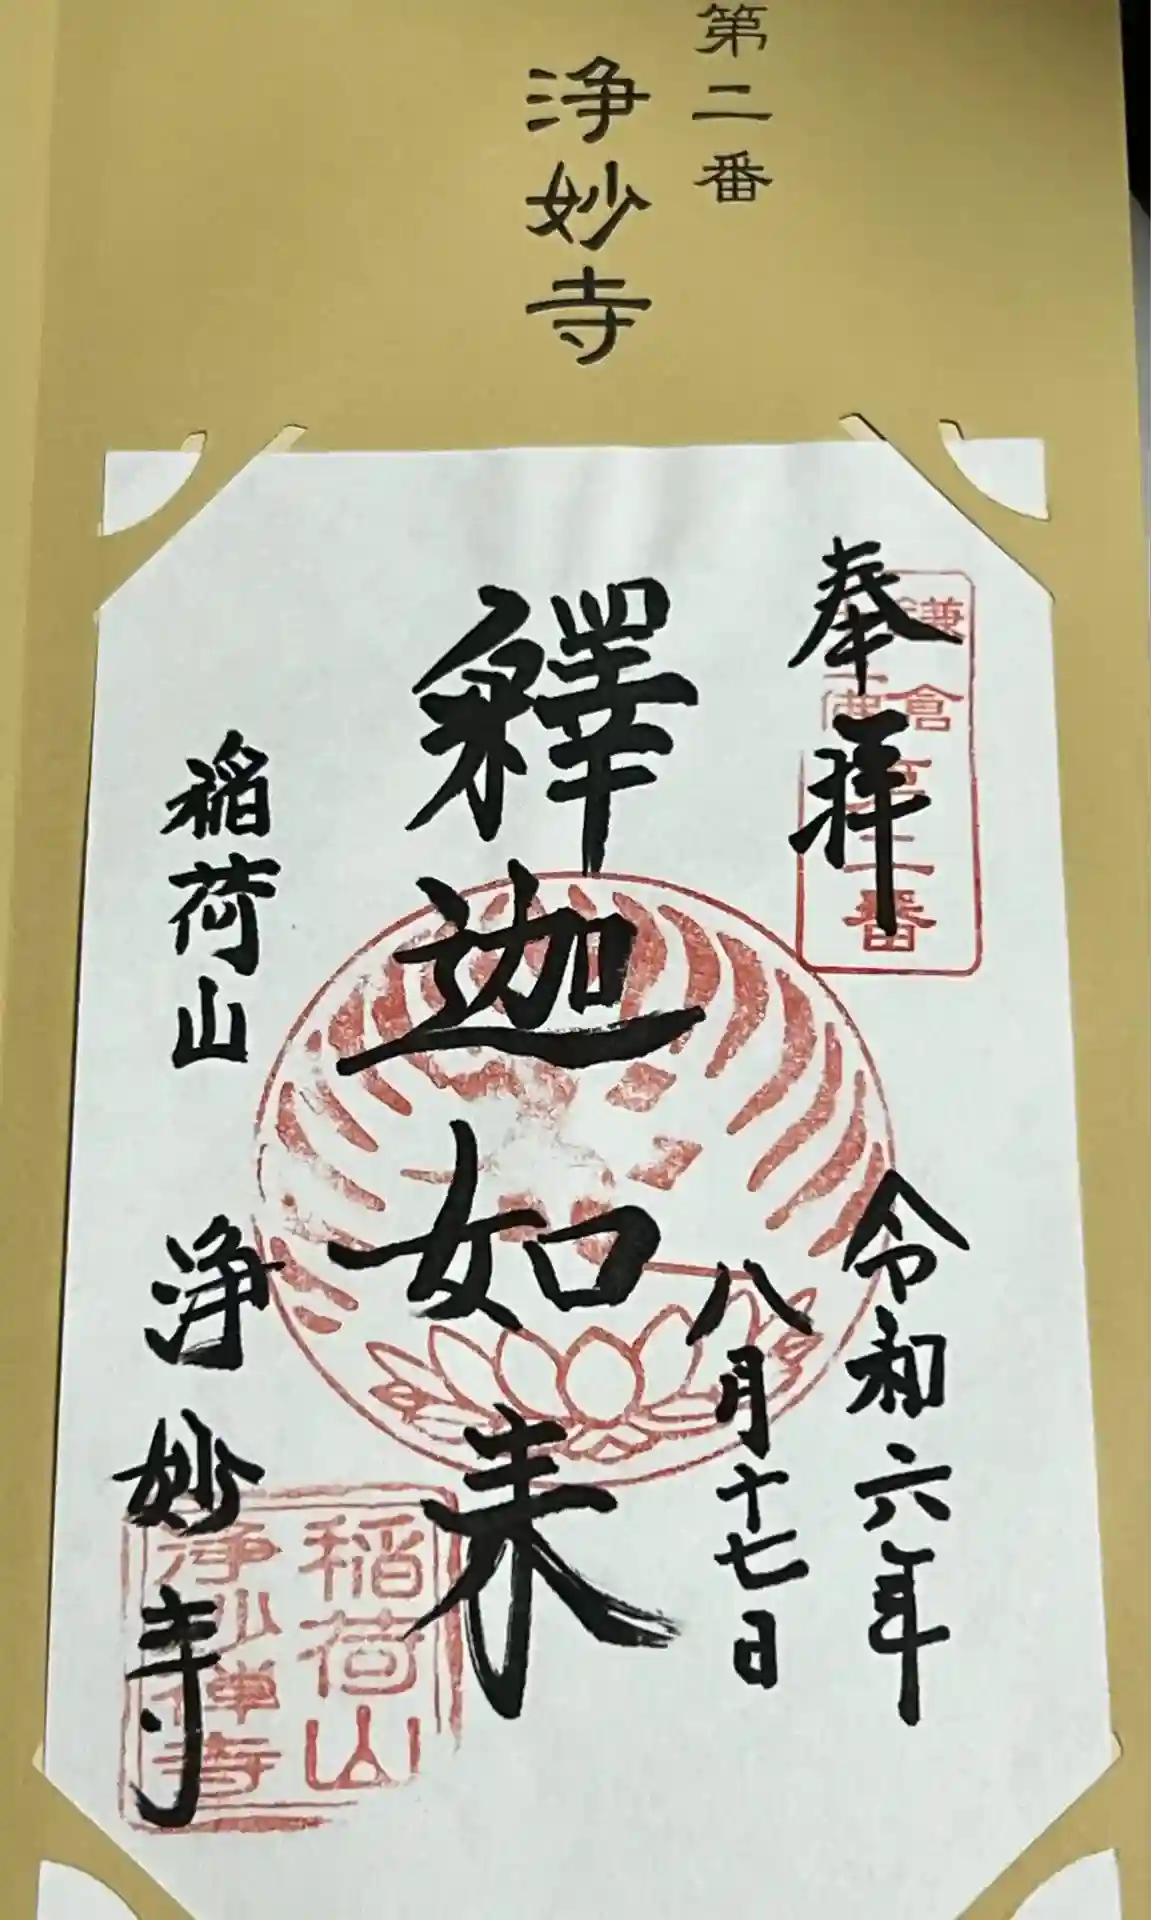 第二番
浄妙寺
奉拝
鎌倉
二番
令和六年
八月十七日
釋迦如来
稲荷山
浄妙寺
稲荷山
浄妙禅寺